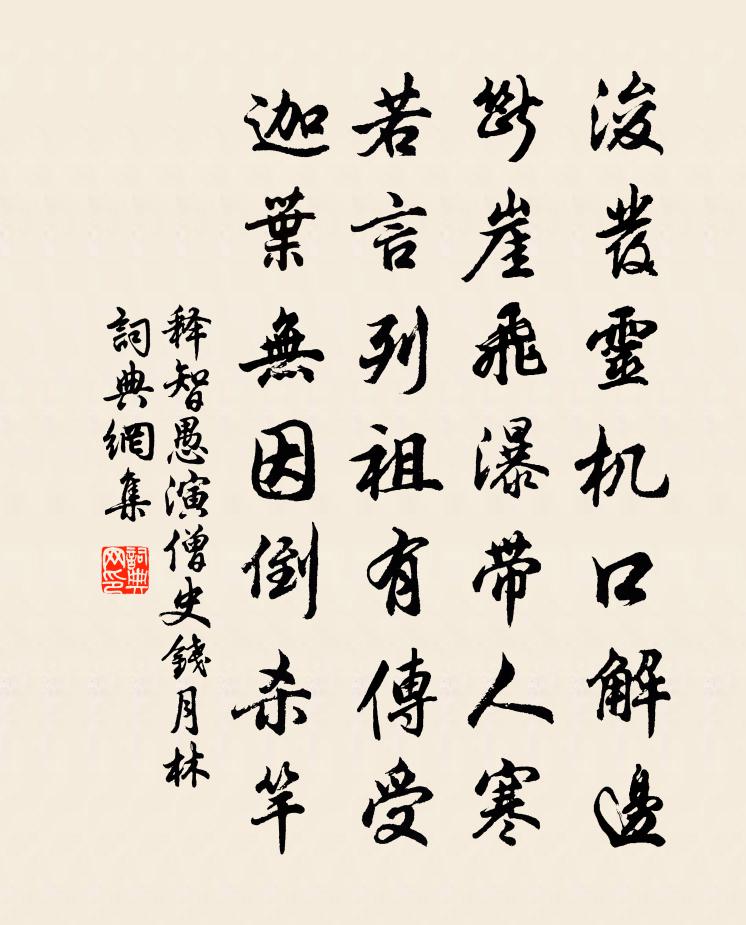 浚發靈机口解邊
斷崖飛瀑帶人寒
若言列祖有傳受
迦葉無因倒杀竿
释智愚演僧史錢月林
詞典網集
詞典網印